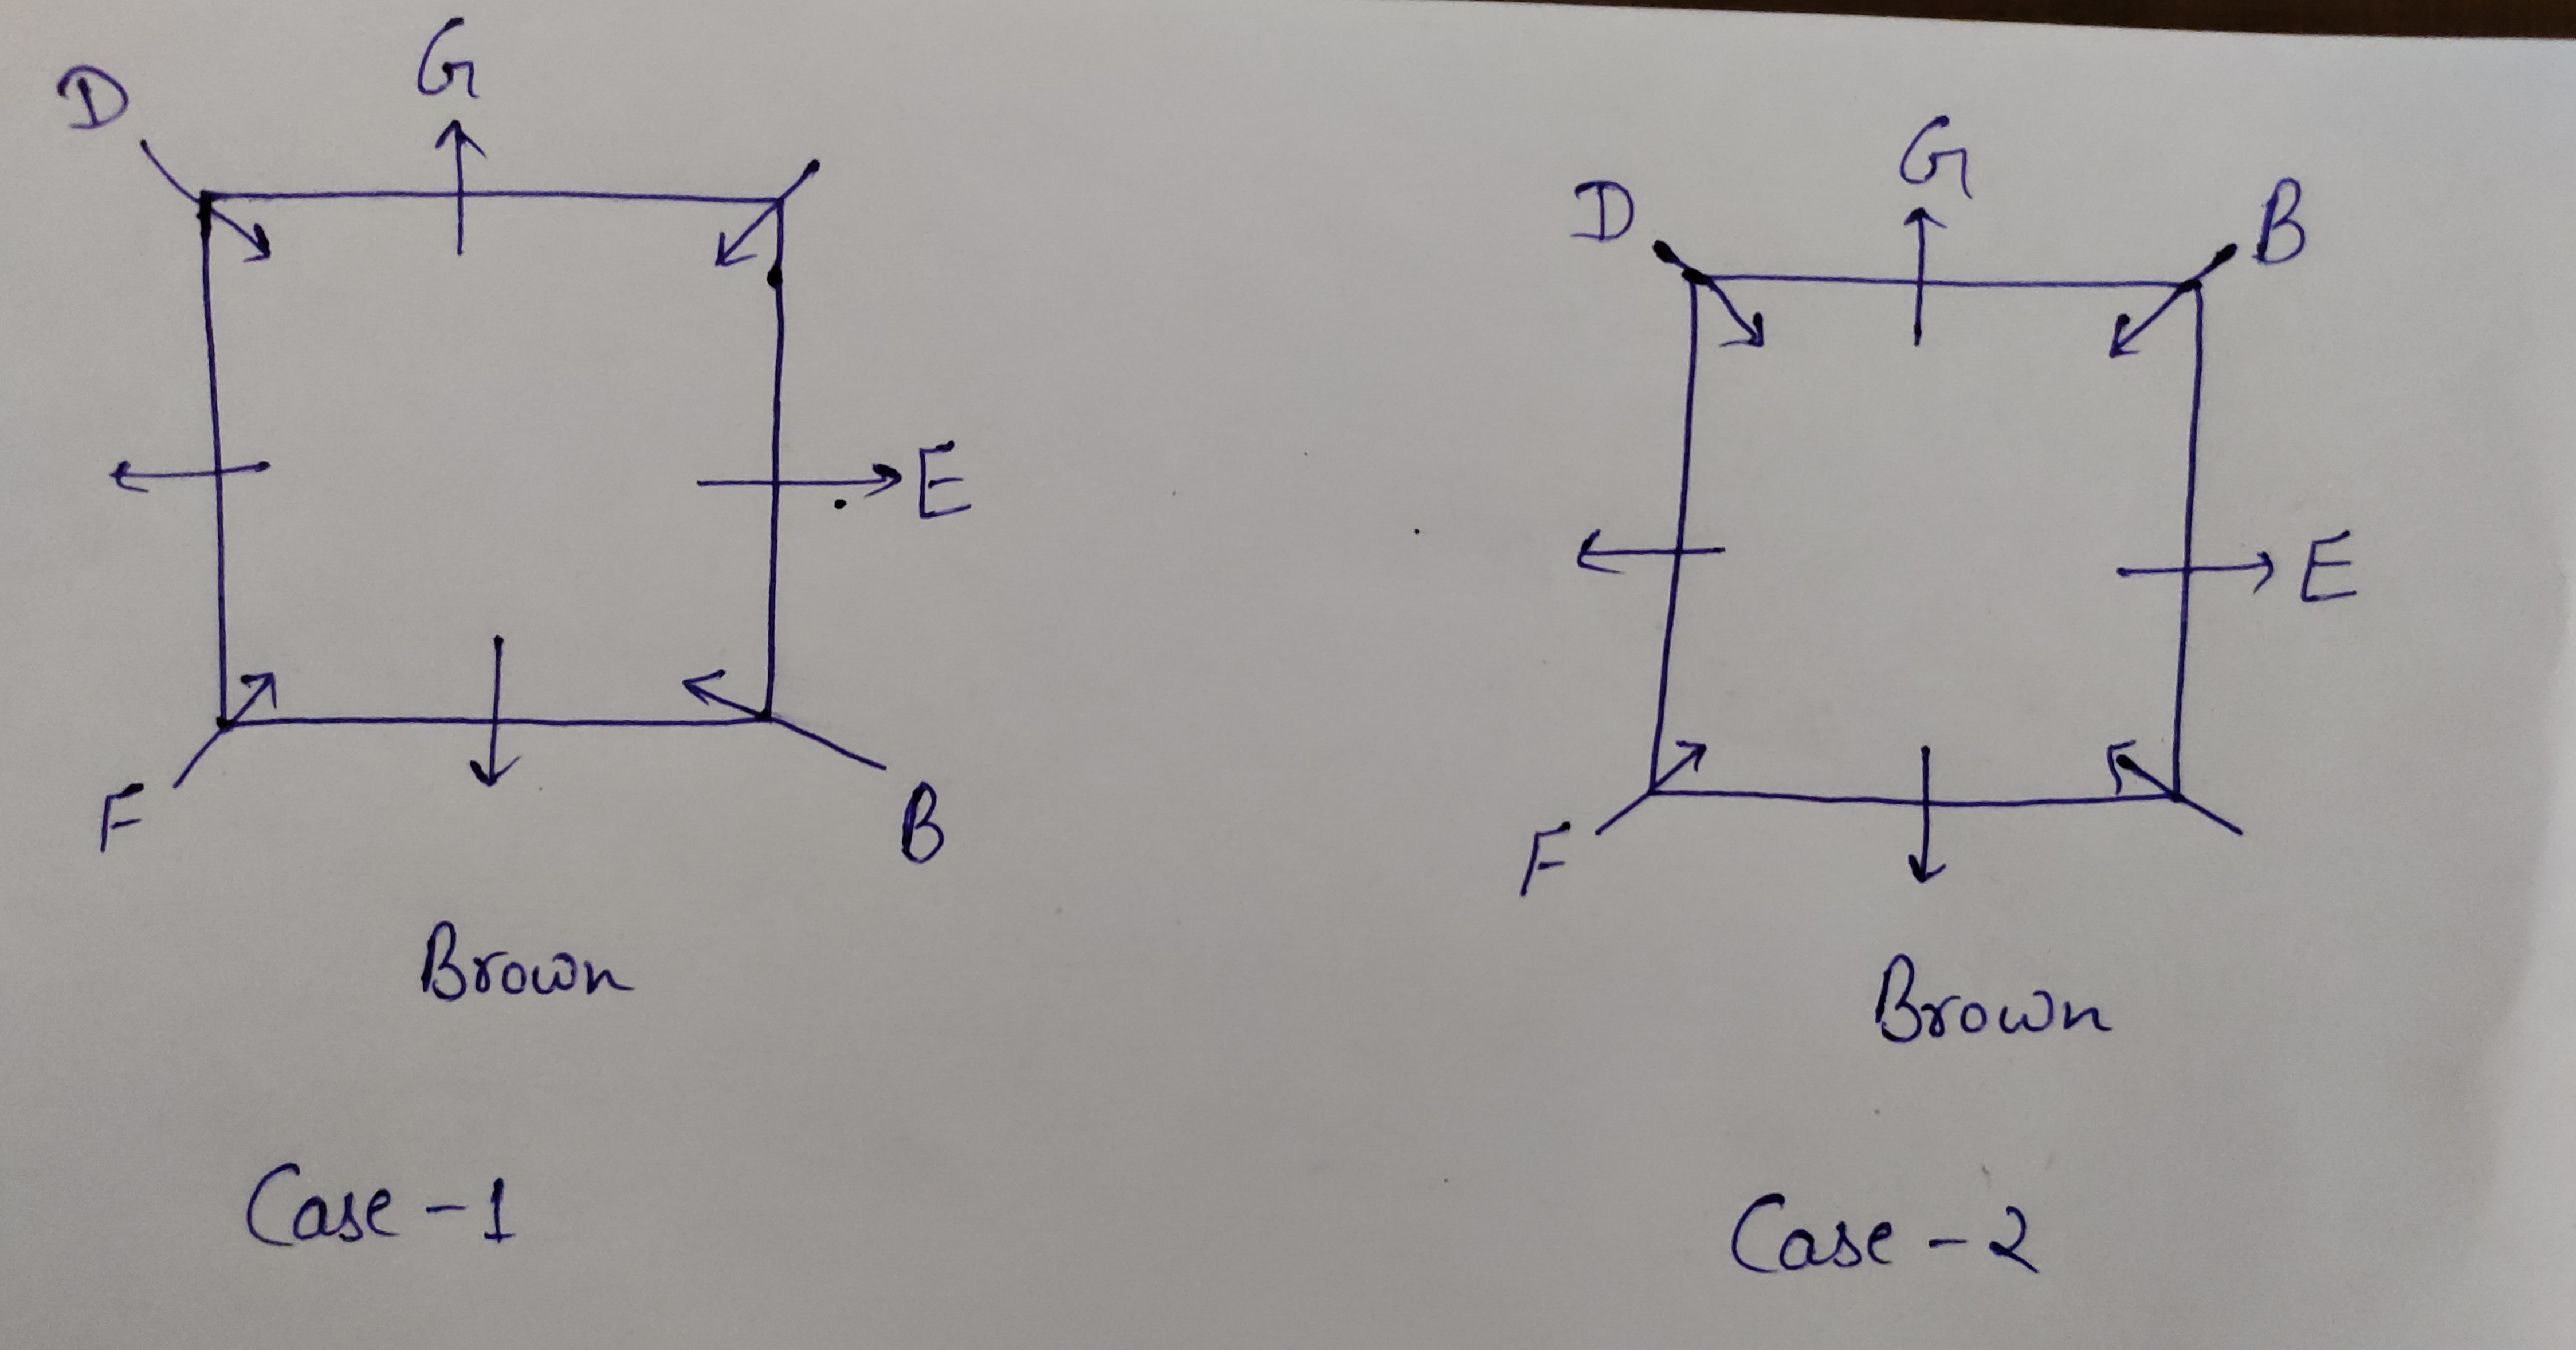 D G
E
F B
Brown
Case-1
D G B
E
F
Brown
Case-2